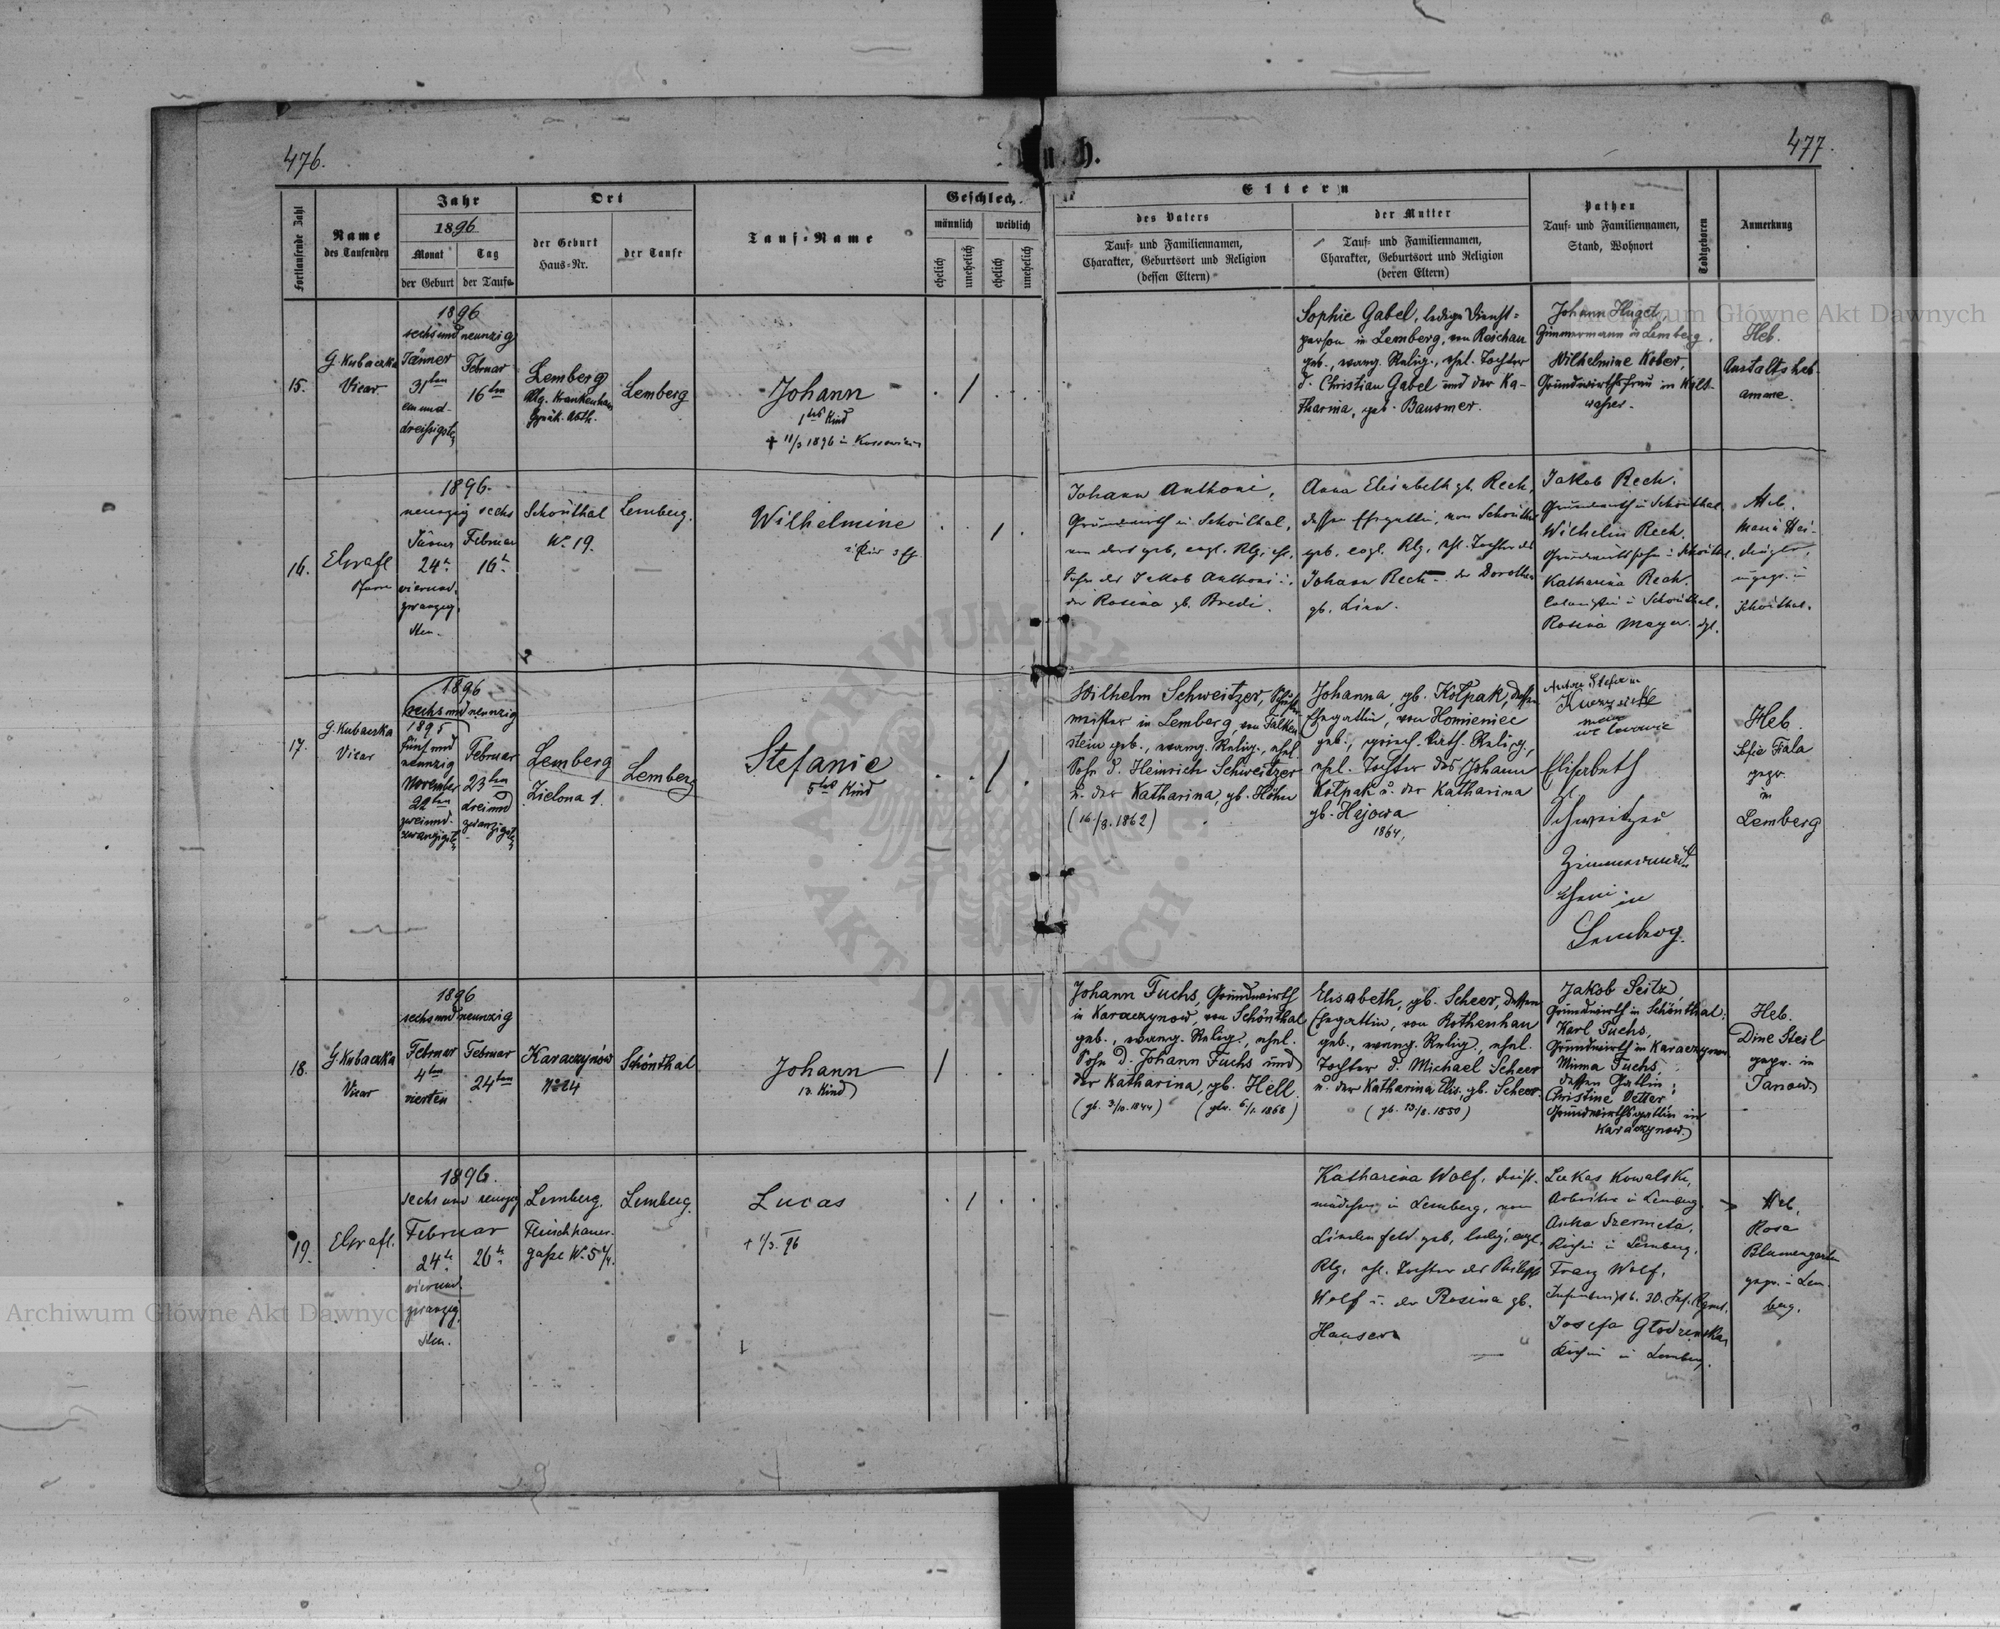 476.
477.
Fortlaufende Zahl
Name
des Taufenden
Jahr
1896
Monat
Tag
der Geburt
der Taufe
Ort
der Geburt
Haus-Nr.
der Taufe
Tauf-Name
Geschlech
männlich
weiblich
ehelich
unehelich
ehelich
unehelich
Eltern
des Vaters
Tauf- und Familiennamen,
Charakter, Geburtsort und Religion
(dessen Eltern)
der Mutter
Tauf- und Familiennamen,
Charakter, Geburtsort und Religion
(deren Eltern)
Pathen
Tauf- und Familiennamen,
Stand, Wohnort
Todtgeboren
Anmerkung
15.
G. Kubaczka
Vicar
1896
sechs und neunzig
Jänner
31ten
ein und-
dreißigsten
Februar
16ten
Lemberg
Allg. Krankenhaus
Lemberg
Johann
1tes Kind
† 11/3 1896 in
Sophie Gabel, ledige Dienst=
person in Lemberg, von Reichau
geb., evang. Relig., ehel. Tochter
d. Christian Gabel und der Ka-
tharina, geb. Bausmer.
Johann Huget,
Zimmermann in Lemberg,
Wilhelmine Kober,
Grundwirthsfrau in Kalt-
wasser.
Heb.
Anstaltsheb-
amme.
16.
EGrafl
Pfarrer
1896.
neunzig sechs
Jänner
24t.
vierund-
zwanzig-
sten.
Februar
16t.
Schönthal
No. 19.
Lemberg.
Wilhelmine
Johann Anthoni,
Grundwirth in Schönthal,
von dort geb., evgl. Rlg., ehl.
Sohn des Jakob Anthoni u.
der Rosina gb. Bredi.
Anna Elisabeth gb. Rech,
dessen Ehegattin, von Schönthal
geb. evgl. Rlg., ehl. Tochter des
Johann Rech u. der Dorothea
gb. Linn.
Jakob Rech.
Grundwirth in Schönthal.
Wilhelm Rech.
Grundwirthssohn in Schönthal.
Katharina Rech.
Colonistin in Schönthal.
Rosina Mayer. dgl.
Heb.
Maria
gepr. in
Schönthal.
17.
G. Kubaczka
Vicar
1896
sechs und neunzig
1895
fünf und
neunzig
November
22ten
zwei und-
zwanzigsten
Februar
23ten
drei und
zwanzigsten
Lemberg
Zielona 1.
Lemberg
Stefanie
5tes Kind
Wilhelm Schweitzer,
meister in Lemberg, von Falken-
stein geb., evang. Relig., ehel.
Sohn d. Heinrich Schweitzer
u. der Katharina, gb. Höhn
(16./8. 1862)
Johanna, gb. Kołpak, dessen
Ehegattin, von Homieniec
geb., griech.-kath. Relig.,
ehel. Tochter des Johann
Kołpak u. der Katharina
gb. Hajowa
1864.
we Lwowie
Elisabeth
Schweitzer
in
Lemberg.
Heb.
Sofie Fiala
gepr.
in
Lemberg
18.
G. Kubaczka
Vicar
1896
sechs und neunzig
Februar
4ten
vierten
Februar
24ten
Karaczynów
No 24
Schönthal
Johann
13. Kind
Johann Fuchs, Grundwirth
in Karaczynow, von Schönthal
geb., evang. Relig., ehel.
Sohn d. Johann Fuchs und
der Katharina, gb. Hell.
(gb. 3/10. 1844)
Elisabeth, gb. Scheer, dessen
Ehegattin, von Rothenhan
geb., evang. Relig., ehel.
Tochter d. Michael Scheer
u. der Katharina Elis., gb. Scheer.
(gb. 13/8. 1850)
Jakob Seitz,
Grundwirth in Schönthal;
Karl Fuchs,
Grundwirth in Karaczynow
Minna Fuchs,
dessen Gattin;
Christine Vetter
Grundwirthsgattin in
Karaczynow.
Heb.
Dine Steil
gepr. in
Janow
19.
EGrafl.
1896.
sechs und neunzig
Februar
24t.
26t.
vierund-
zwanzig-
sten.
Lemberg.
Fleischhauer-
gasse No. 5
Lemberg.
Lucas
† 1/3. 96
Katharina Wolf, Dienst-
mädchen in Lemberg, von
Lindenfeld geb., ledig, evgl.
Rlg., ehl. Tochter des Philipp
Wolf u. der Rosina gb.
Hauser
Lukas Kowalski,
Arbeiter in Lemberg.
Anna Szermeta,
Köchin in Lemberg.
Franz Wolf,
Infanterist b. 30. Inf. Rgmt.
Josefa
Köchin in Lemberg.
Heb.
Rosa
Blumengarten
gepr. in Lem-
berg.
Archiwum Główne Akt Dawnych
Archiwum Główne Akt Dawnych